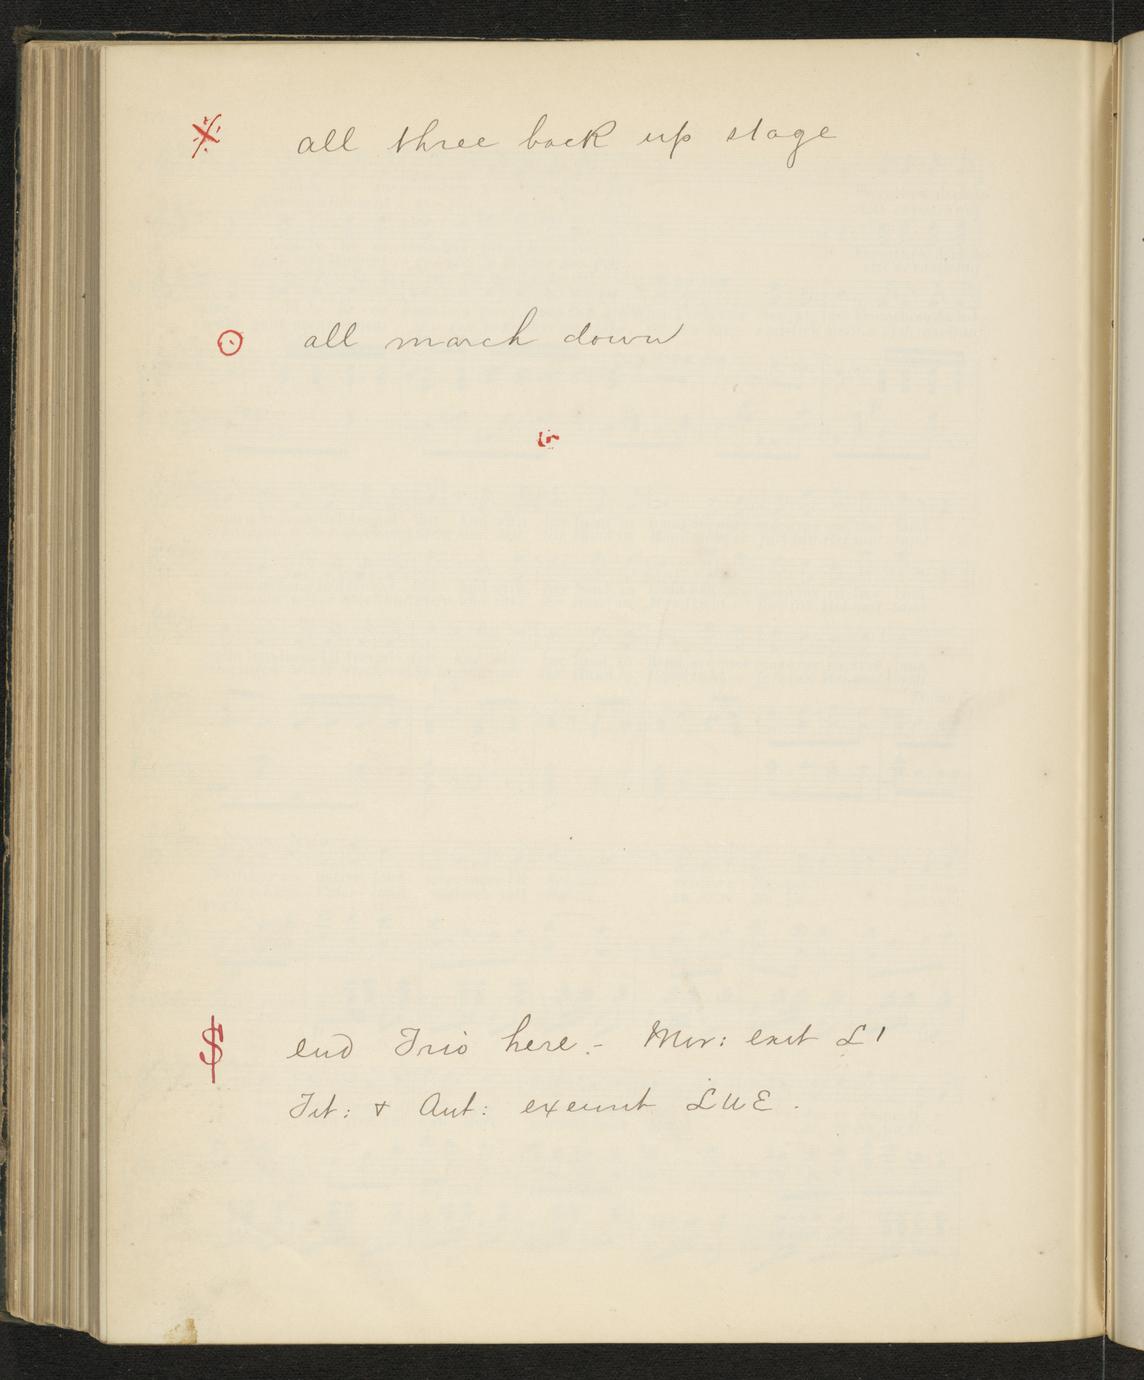 ※ all three back up stage
⊙ all march down
$ end Trio here. - Mir: exit L 1
Tit: & Ant: exeunt LUE.